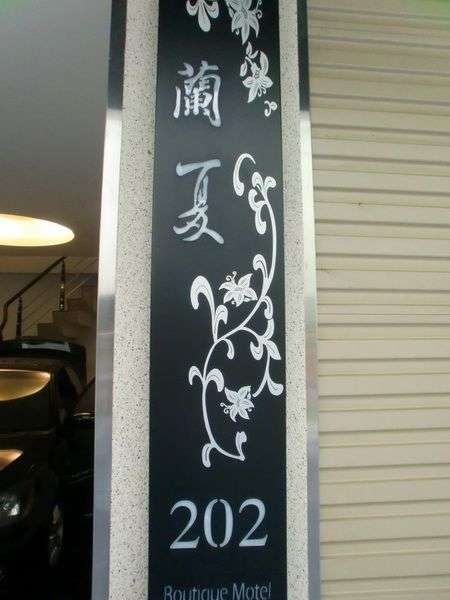 蘭夏
202
Boutique Motel